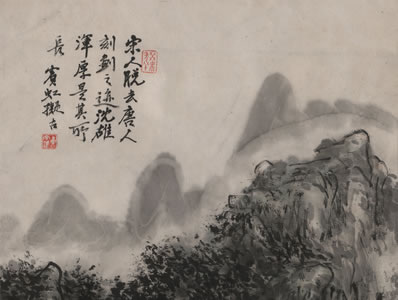 宋人脱去唐人
刻劃之迹沈雄
渾厚是其所
長 賓虹擬古